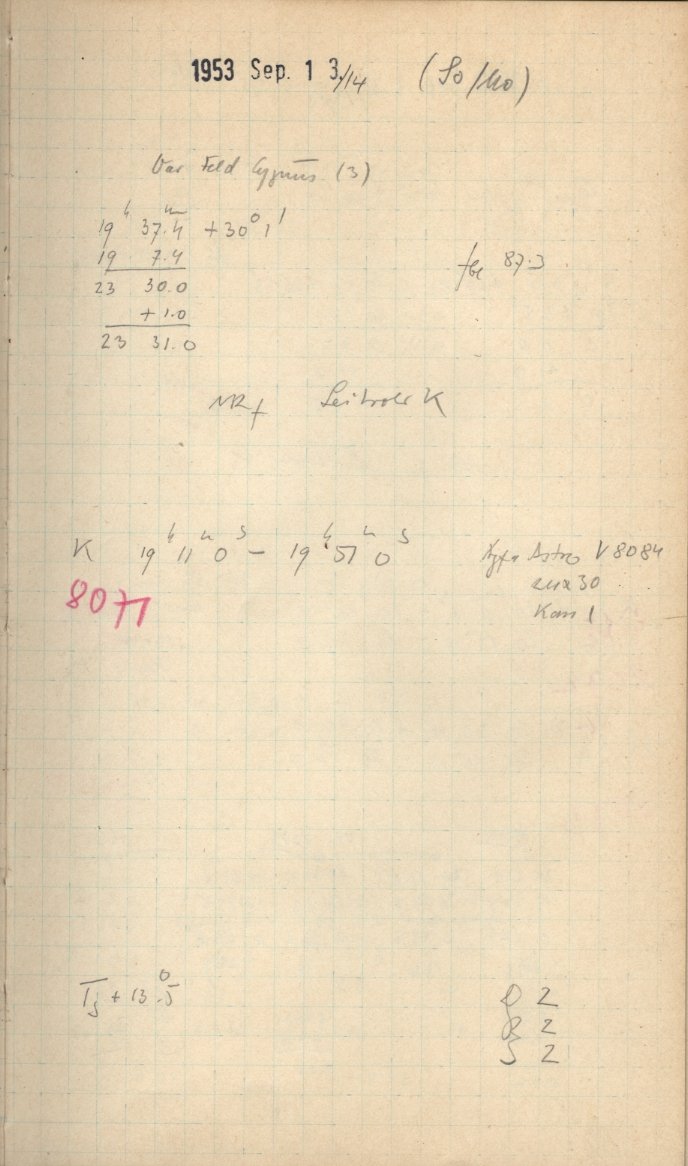 1953 Sep. 13/14 (So/Mo)
Var Feld Cygnus (3)
19h 37m.4 +30° 1'
19 7.4
23 30.0
+1.0
23 31.0
87.3
Leitrohr K
K 19h 11m 0s – 19h 51m 0s
Agfa Astro V 8084
9x12 30
Kass 1
8071
+ 13°.5
D 2
R 2
S 2